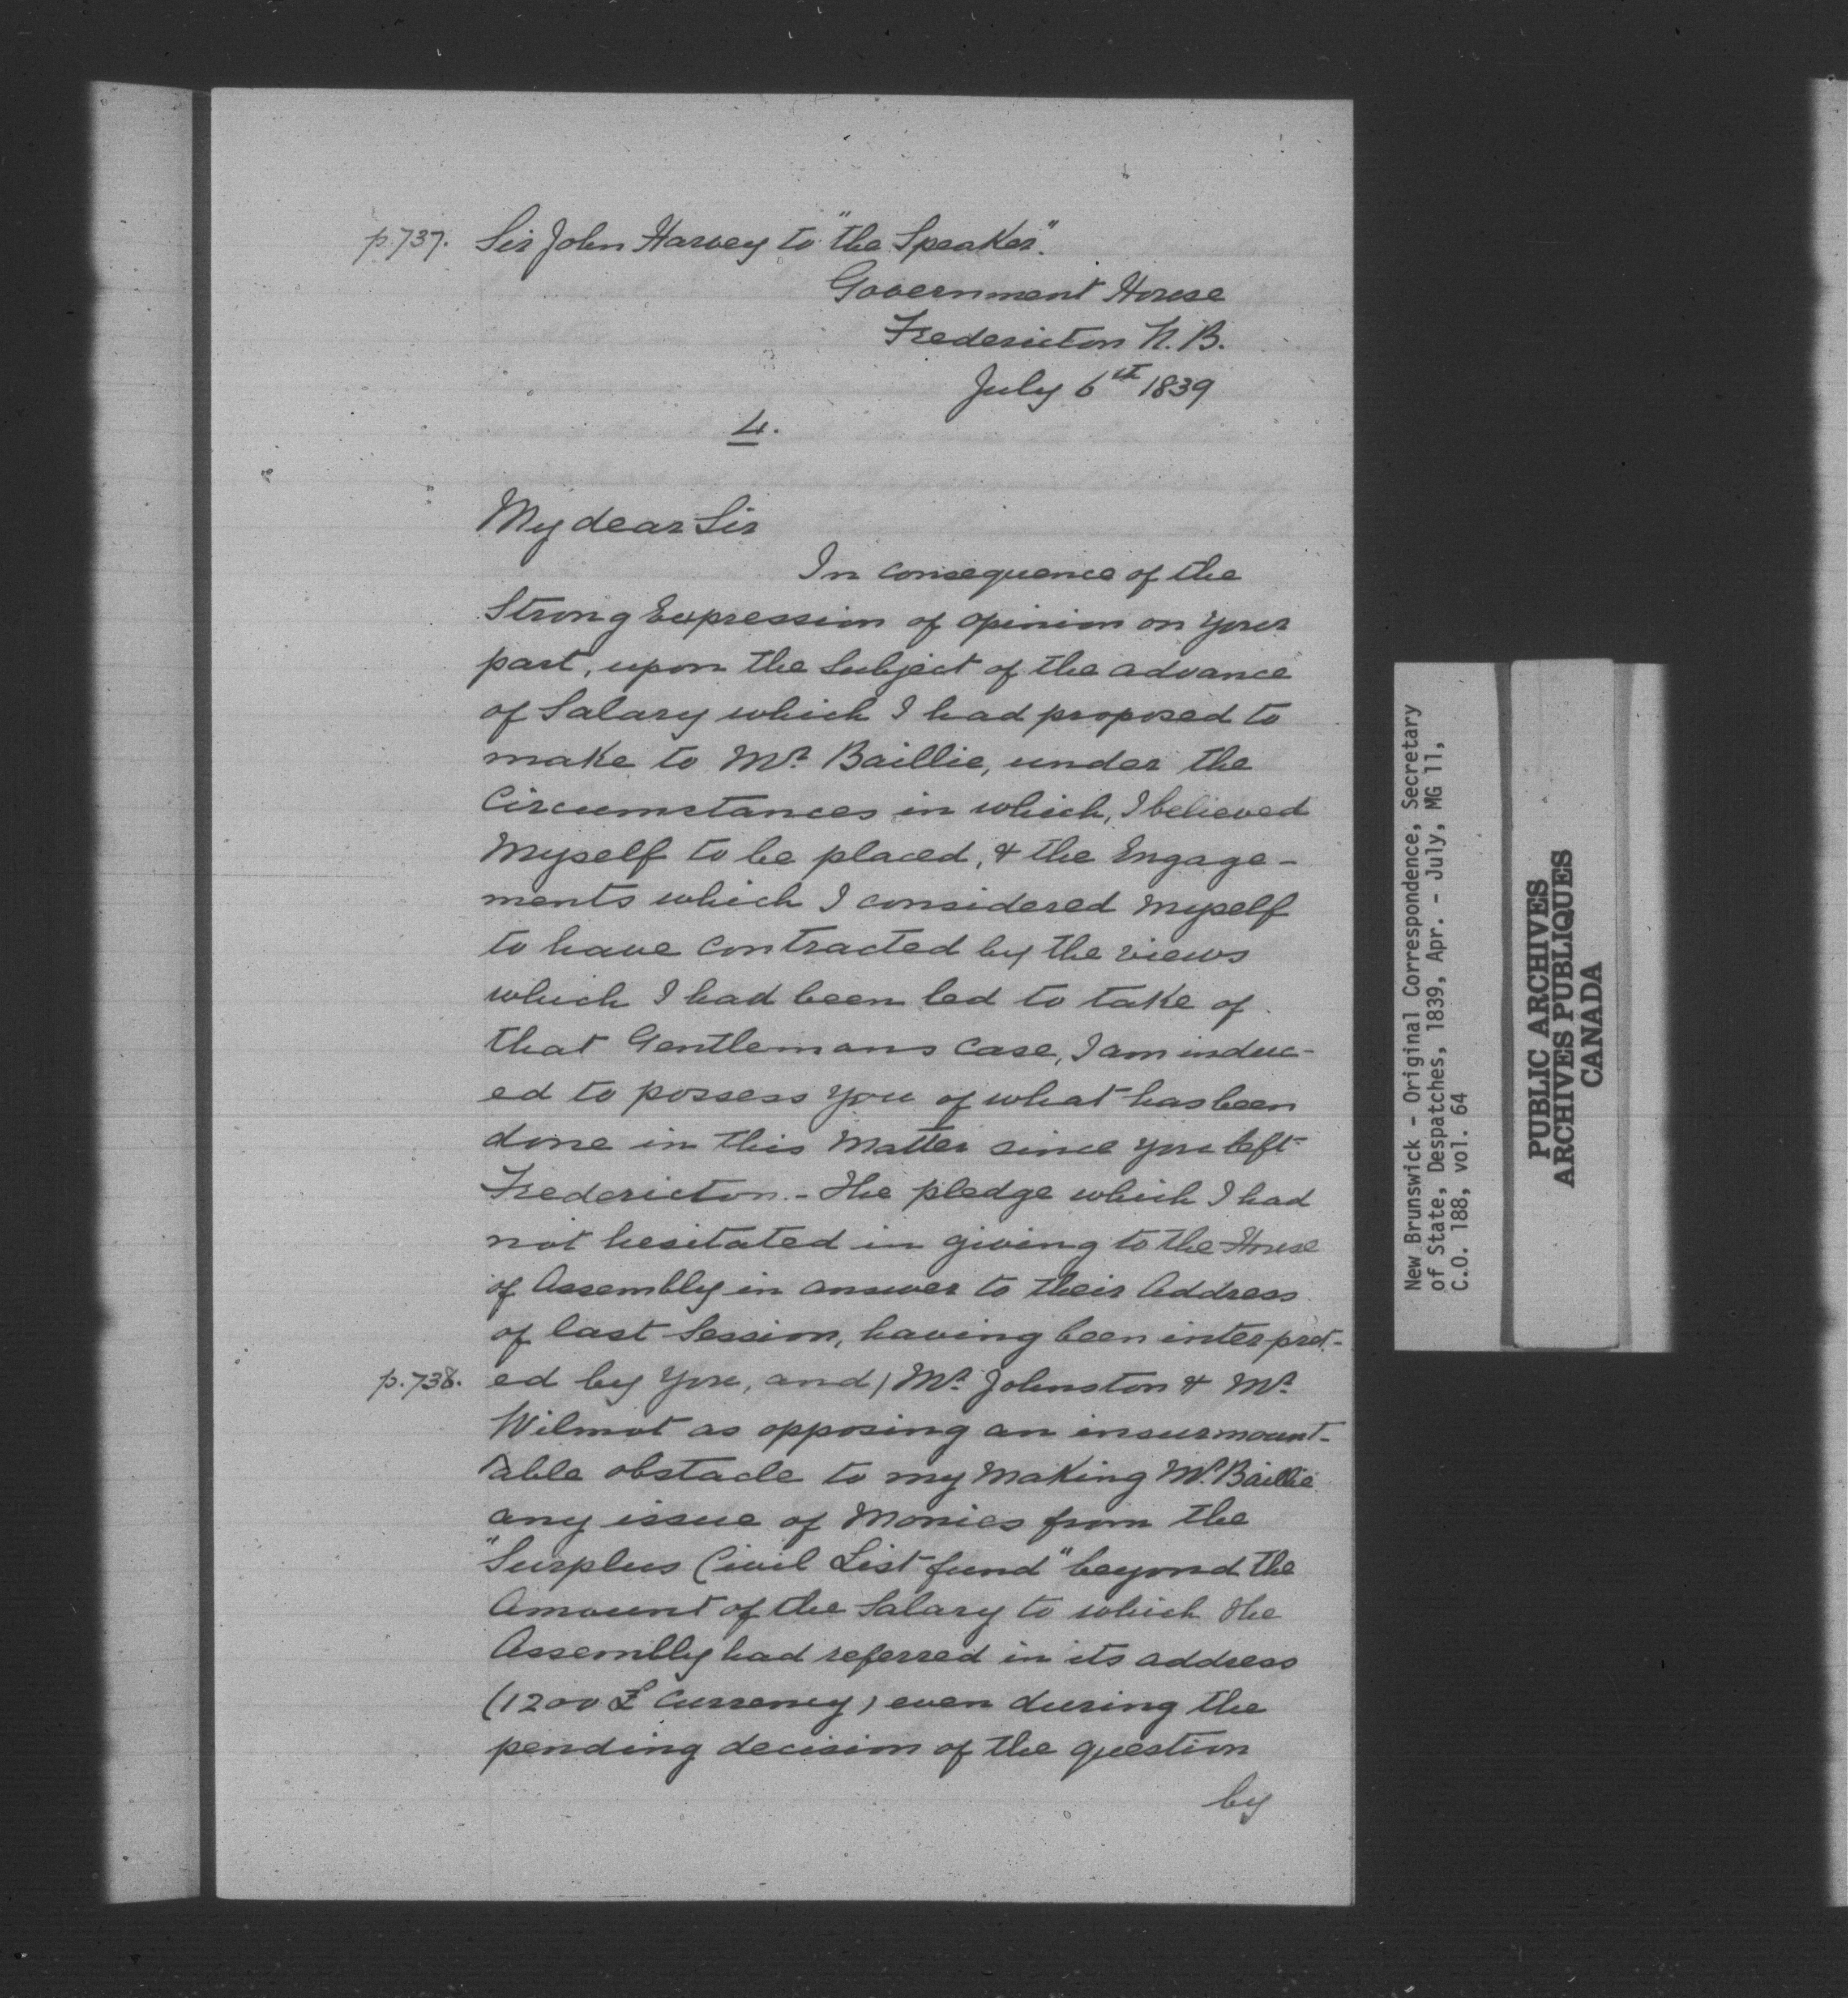 p.737. Sir John Harvey to "the Speaker".
Government House
Fredericton N.B.
July 6th 1839
4.
My dear Sir
In consequence of the
Strong Expression of opinion on your
part, upon the Subject of the advance
of Salary which I had proposed to
make to Mr. Baillie, under the
Circumstances in which, I believed
Myself to be placed, & the Engage-
ments which I considered Myself
to have contracted by the views
which I had been led to take of
that Gentlemans Case, I am induc-
ed to possess You of what has been
done in this Matter since you left
Fredericton. - The pledge which I had
not hesitated in giving to the House
of Assembly in answer to their Address
of last Session, having been interpret-
p.738. ed by You, and / Mr. Johnston & Mr.
Wilmot as opposing an insurmount-
able obstacle to my Making Mr. Baillie
any issue of Monies from the
"Surplus Civil List fund" beyond the
Amount of the Salary to which the
Assembly had referred in its address
(1200 £ Currency) even during the
pending decision of the question
by
New Brunswick - Original Correspondence, Secretary
of State, Despatches, 1839, Apr. - July, MG 11,
C.O. 188, vol. 64
PUBLIC ARCHIVES
ARCHIVES PUBLIQUES
CANADA